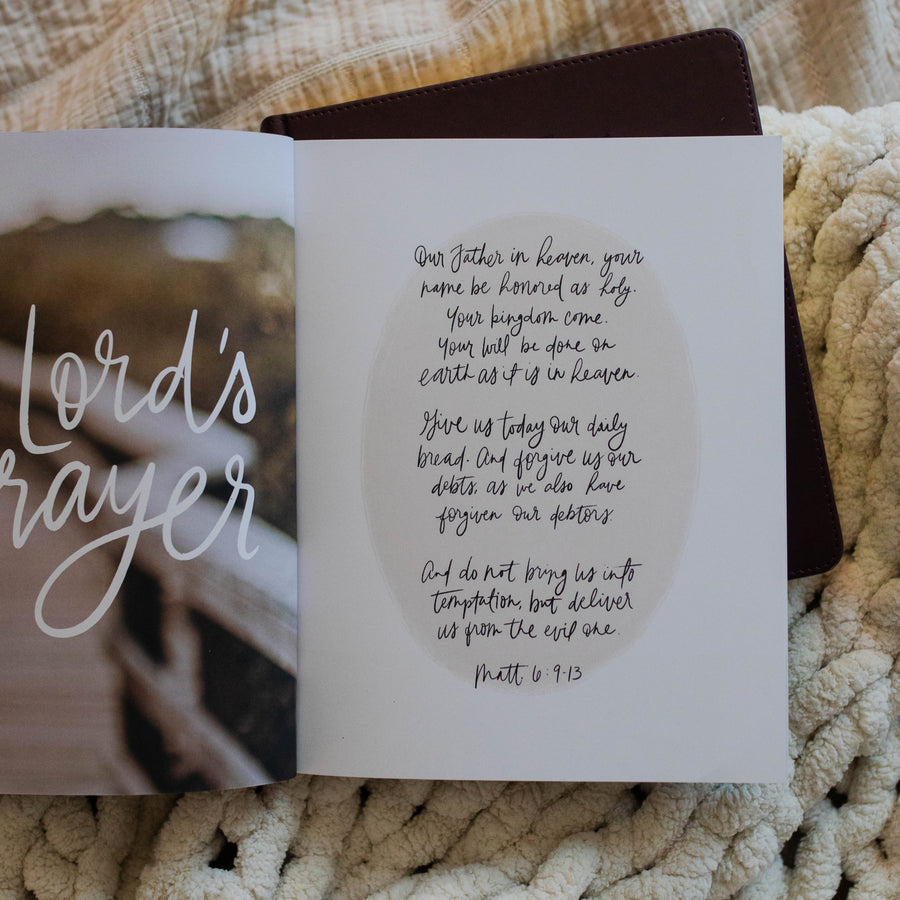 Lord's
rayer
Our Father in heaven, your
name be honored as holy.
Your kingdom come.
Your will be done on
earth as it is in heaven.
Give us today our daily
bread. And forgive us our
debts, as we also have
forgiven our debtors.
And do not bring us into
temptation, but deliver
us from the evil one.
Matt. 6:9-13